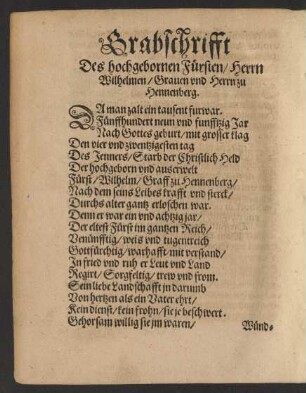 Grabschrifft
Des hochgebornen Fürsten/ Herrn
Wilhelmen/ Grauen vnd Herrn zu
Hennenberg.
DA man zalt ein tausent furwar.
Fünffhundert neun vnd funfftzig Jar
Nach Gottes geburt/ mit grosser klag
Den vier vnd zwentzigesten tag
Des Jenners/ Starb der Christlich Held
Der hochgeborn vnd auserwelt
Fürst/ Wilhelm/ Graff zu Hennenberg/
Nach dem seins Leibes krafft vnd sterck/
Durchs alter gantz erloschen war.
Denn er war ein vnd achtzig jar/
Der eltest Fürst im gantzen Reich/
Venünfftig/ weis vnd tugentreich
Gottfürchtig/ warhafft mit verstand/
In fried vnd ruh er Leut vnd Land
Regirt/ Sorgfeltig/ trew vnd from.
Sein liebe Landschafft jn darumb
Von hertzen als ein Vater ehrt/
Kein dienst/ kein frohn/ sie je beschwert.
Gehorsam willig sie jm waren/
Wünd-